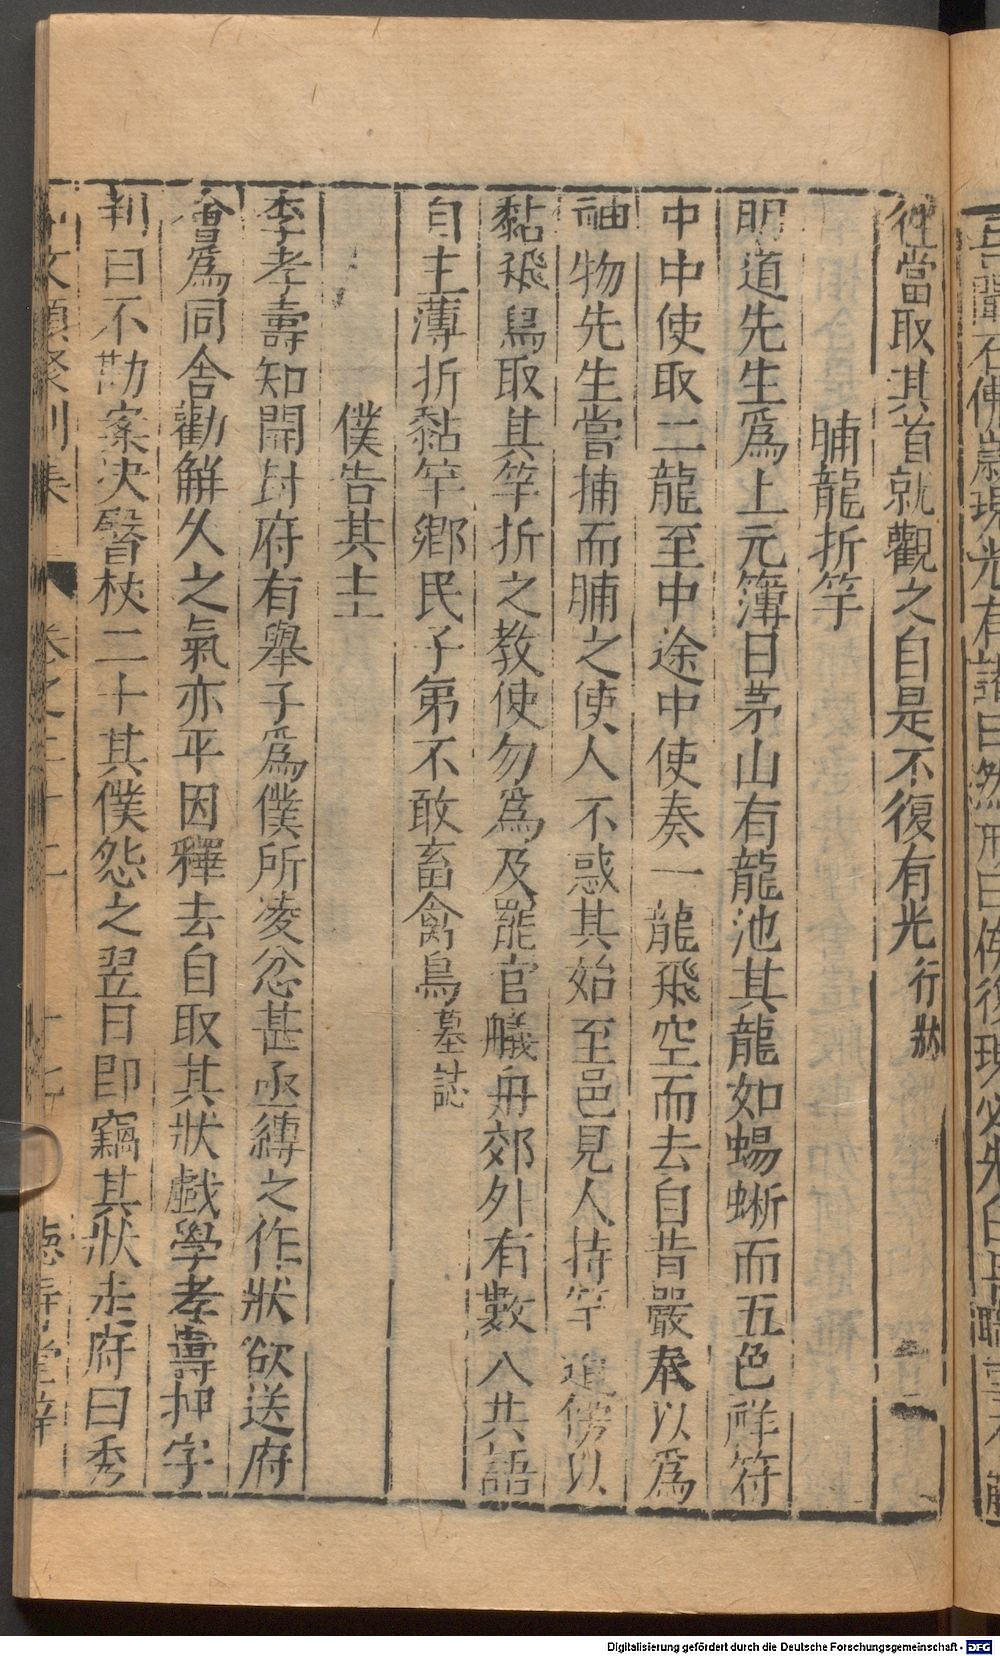 從當取其首就觀之自是不復有光行狀
脯龍折竿
明道先生爲上元簿日茅山有龍池其龍如蜴蜥而五色祥符
中中使取二龍至中途中使奏一龍飛空而去自昔嚴奉以爲
神物先生嘗捕而脯之使人不惑其始至邑見人持竿道傍以
黏飛鳥取其竿折之教使勿爲及罷官艤舟郊外有數人共語
自主薄折黏竿鄉民子弟不敢畜禽鳥墓誌
僕告其主
李孝壽知開封府有舉子爲僕所凌忿甚亟縛之作狀欲送府
會爲同舍勸解久之氣亦平因釋去自取其狀戲學孝壽押字
判曰不勘案决臀杖二十其僕怨之翌日即竊其狀走府曰秀
文類聚別集 卷之三十二 十七 德壽堂梓
Digitalisierung gefördert durch die Deutsche Forschungsgemeinschaft - DFG